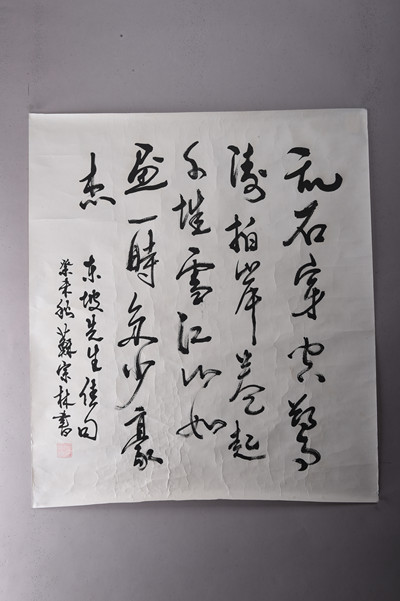 乱石穿空惊
涛拍岸卷起
千堆雪江山如
画一時多少豪
杰
东坡先生佳句
癸未秋蘇宗林書